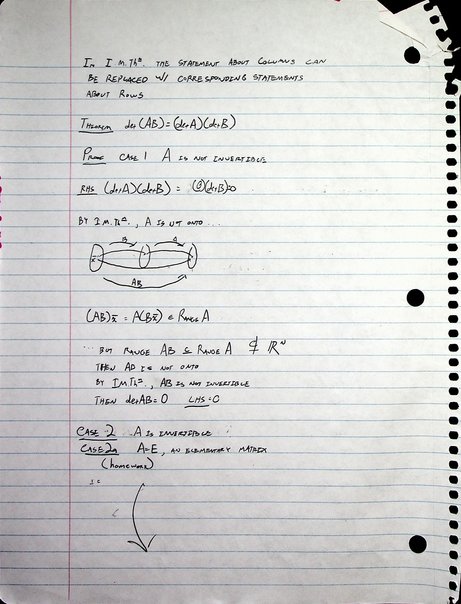 In I.M.Thm. the statement about columns can
be replaced w/ corresponding statements
about rows
Theorem det(AB)=(detA)(detB)
Proof Case 1 A is not invertible
RHS (detA)(detB) = (0)(detB)=0
By I.M.Thm., A is not onto...
B A
x̄
AB
(AB)x̄ = A(Bx̄) ∈ Range A
∴ but range AB ⊆ Range A ⊊ ℝⁿ
then AB is not onto
by IMThm, AB is not invertible
then detAB=0 LHS=0
Case 2 A is invertible
Case 2a A=E, an elementary matrix
(homework)